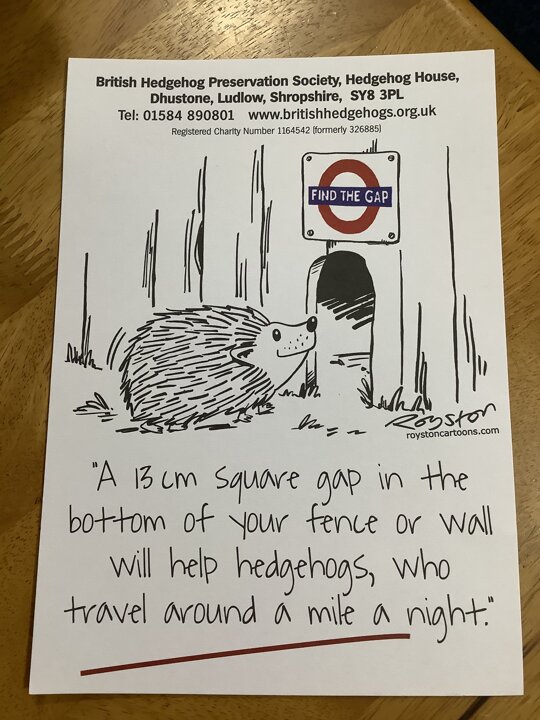 British Hedgehog Preservation Society, Hedgehog House,
Dhustone, Ludlow, Shropshire, SY8 3PL
Tel: 01584 890801 www.britishhedgehogs.org.uk
Registered Charity Number 1164542 (formerly 326885)
FIND THE GAP
Royston
roystoncartoons.com
"A 13cm square gap in the
bottom of your fence or wall
will help hedgehogs, who
travel around a mile a night."